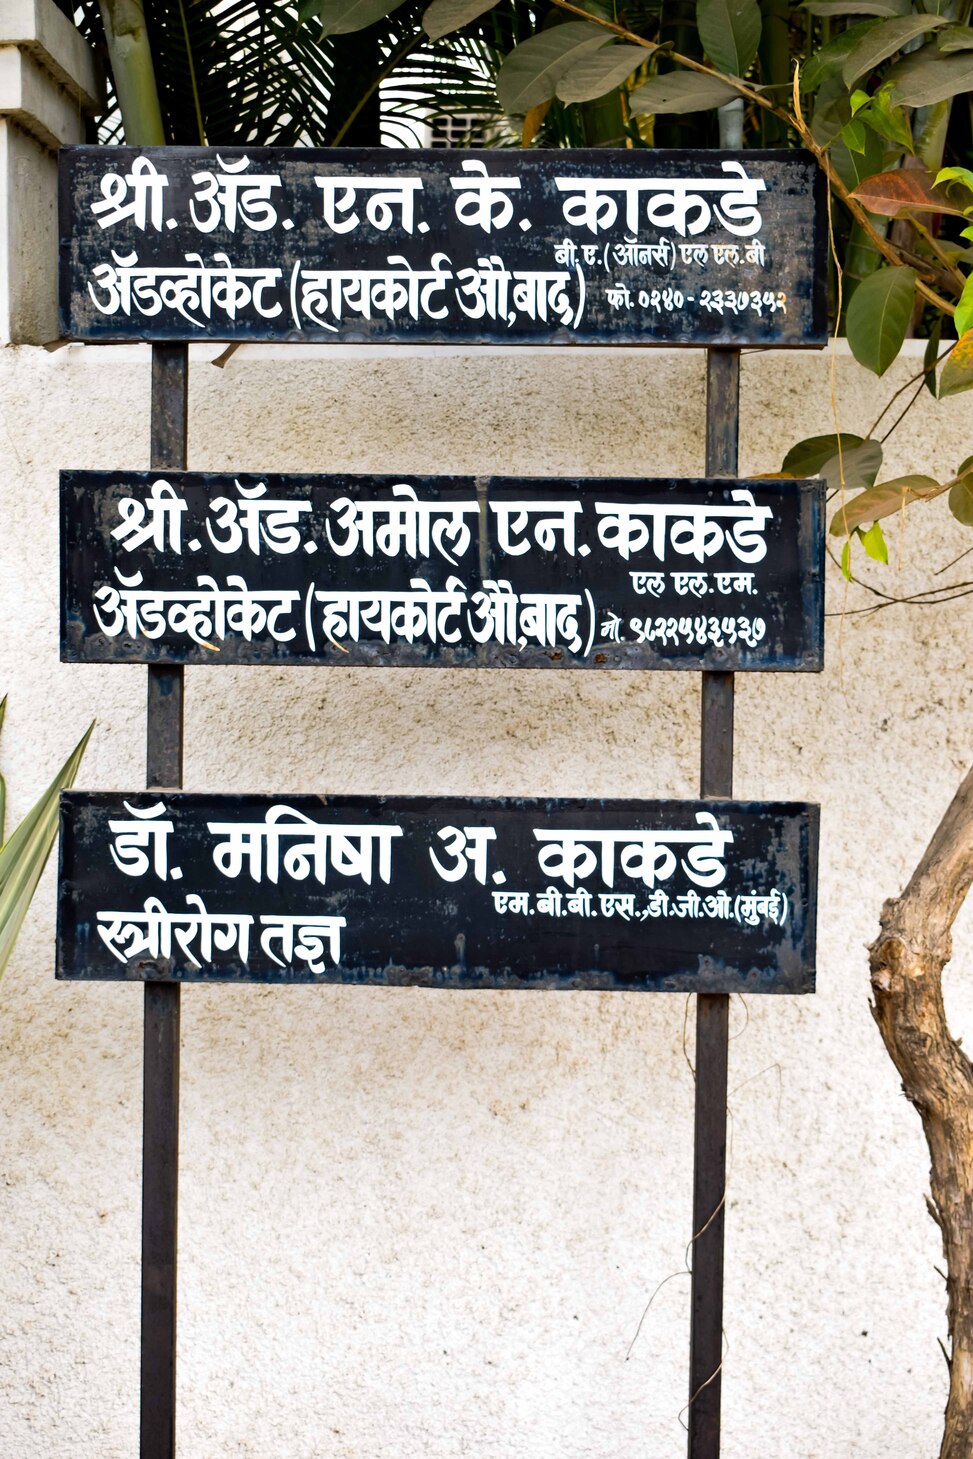 श्री. ॲड. एन. के. काकडे
बी.ए.(ऑनर्स) एल एल.बी
ॲडव्होकेट (हायकोर्ट औ,बाद)
फो. ०२४० - २३३७३५२
श्री.ॲड.अमोल एन.काकडे
एल एल.एम.
ॲडव्होकेट (हायकोर्ट औ,बाद)
मो. ९८२२५४३५३७
डॉ. मनिषा अ. काकडे
एम.बी.बी.एस.,डी.जी.ओ.(मुंबई)
स्त्रीरोग तज्ञ